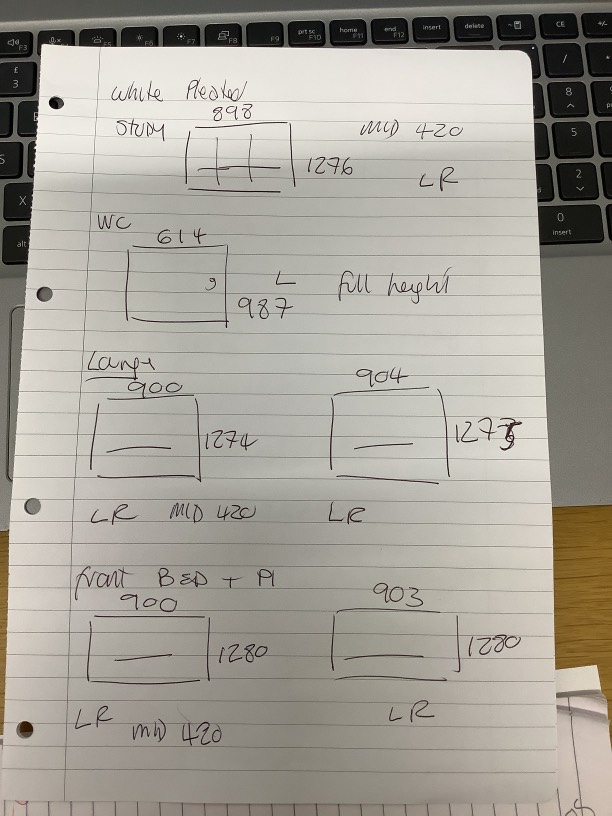 White Pleated
STUDY 898 MID 420
1276 LR
WC
614
L full height
987
Lounge
900 904
1274 1273
LR MID 420 LR
front BED + Pl
900 903
1280 1280
LR MID 420 LR
prt sc F10
home F11
end F12
insert
delete
CE
F3
F4
F5
F6
F7
F8
F9
£
3
8
5
2
0
insert
S
X
alt
/